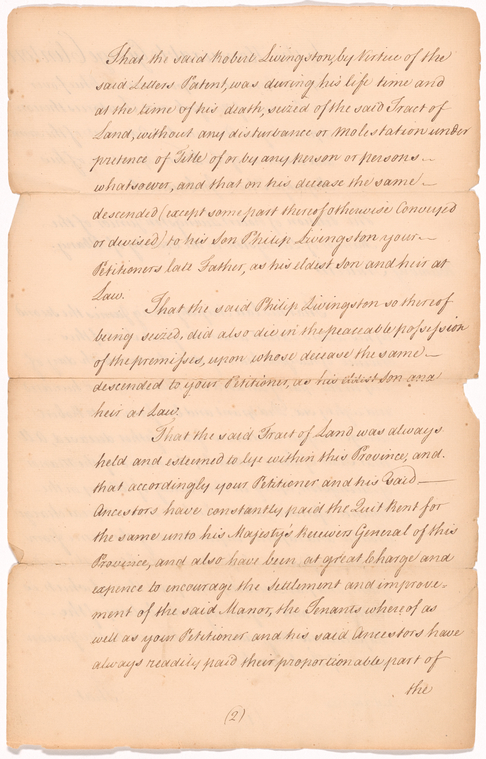 That the said Robert Livingston, by Virtue of the
said Letters Patent, was during his life time and
at the time of his death, seized of the said Tract of
Land, without any disturbance or molestation under
pretence of Title of or by any person or persons —
whatsoever, and that on his decease the same —
descended (except some part thereof otherwise Conveyed
or devised) to his Son Philip Livingston your —
Petitioners late Father, as his eldest son and heir at
Law.
That the said Philip Livingston so thereof
being seized, did also die in the peaceable possession
of the premisses, upon whose decease the same —
descended to your Petitioner, as his eldest son and
heir at Law.
That the said Tract of Land was always
held and esteemed to lye within this Province, and
that accordingly your Petitioner and his said —
Ancestors have constantly paid the Quit Rent for
the same unto his Majesty's Receivers General of this
Province, and also have been at great Charge and
expence to encourage the settlement and improve-
ment of the said Manor, the Tenants whereof as
well as your Petitioner and his said Ancestors have
always readily paid their proportionable part of
the
(2)